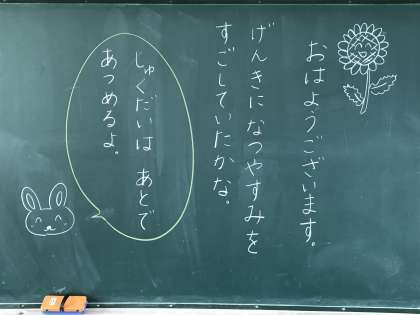 おはようございます。
げんきになつやすみを
すごしていたかな。
しゅくだいは あとで
あつめるよ。